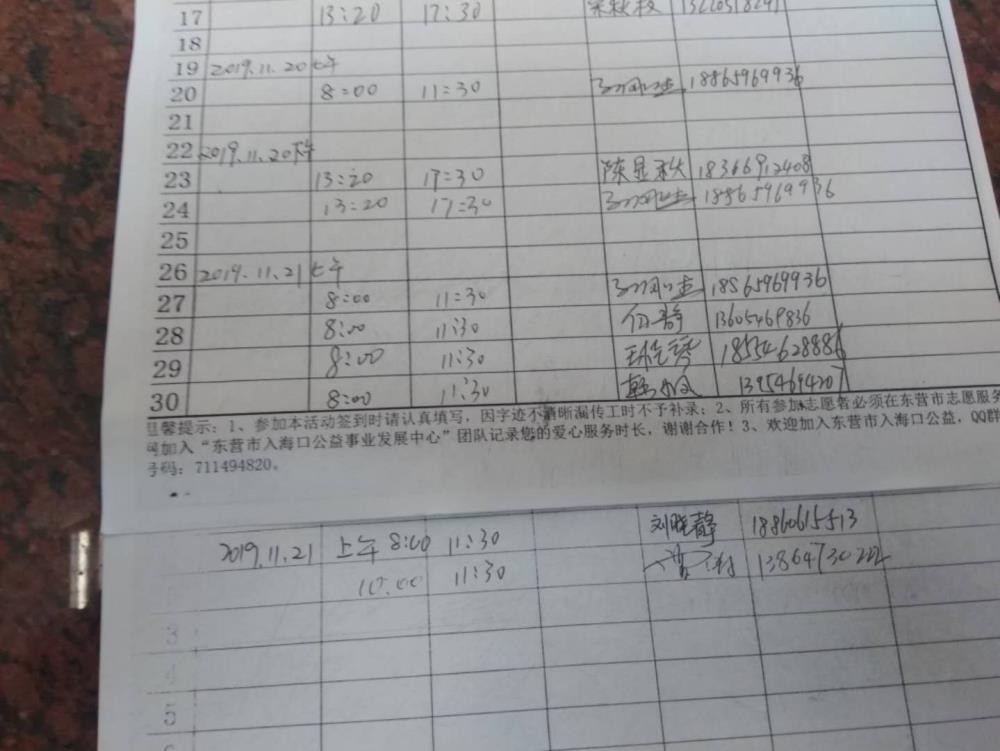 17 13:20 17:30
18
19 2019.11.20 上午
20 8:00 11:30 18865969936
21
22 2019.11.20下午
23 13:20 17:30 陈显秋 18366912408
24 13:20 17:30 18865969936
25
26 2019.11.21 上午
27 8:00 11:30 18865969936
28 8:00 11:30 伯静 13605469836
29 8:00 11:30 18554628886
30 8:00 11:30 13954694207
温馨提示：1、参加本活动签到时请认真填写，因字迹不清晰漏传工时不予补录；2、所有参加志愿者必须在东营市志愿服务
网加入“东营市入海口公益事业发展中心”团队记录您的爱心服务时长，谢谢合作！3、欢迎加入东营市入海口公益，QQ群
号码：711494820。
2019.11.21 上午 8:00 11:30 刘晓静 18860615513
10:00 11:30
3
4
5